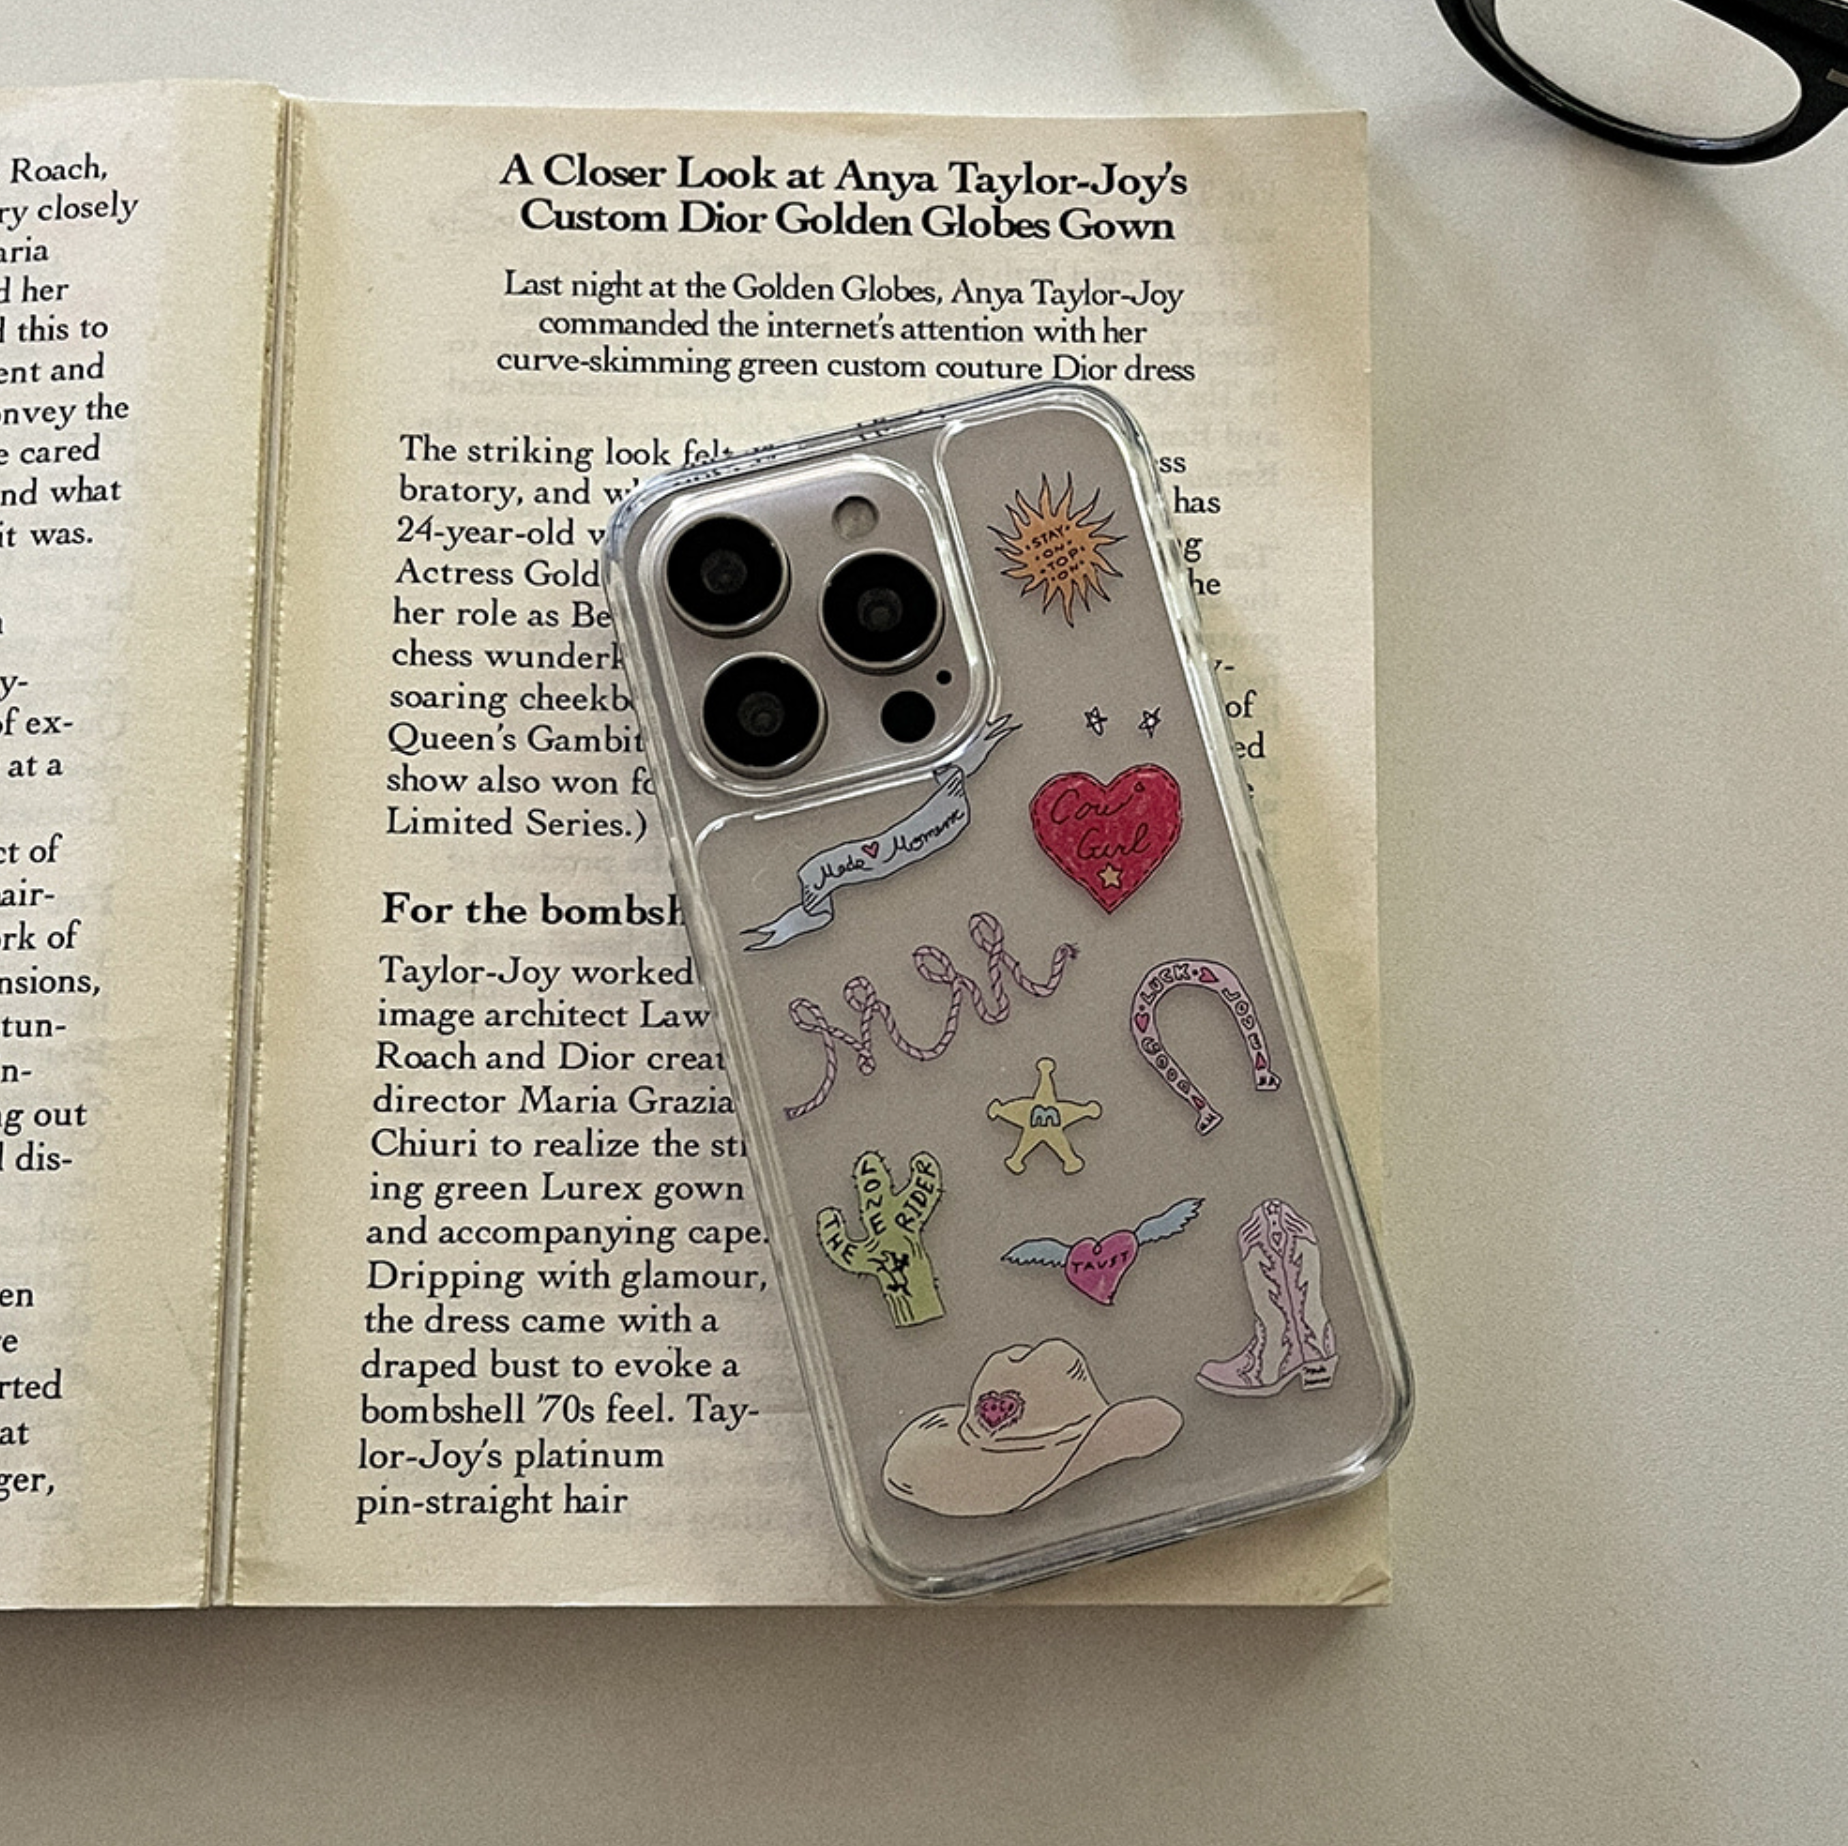 Roach,
ry closely
aria
d her
d this to
ent and
onvey the
e cared
nd what
it was.
y-
of ex-
at a
ct of
air-
ork of
nsions,
tun-
n-
ng out
d dis-
en
re
rted
at
ger,
A Closer Look at Anya Taylor-Joy's
Custom Dior Golden Globes Gown
Last night at the Golden Globes, Anya Taylor-Joy
commanded the internet's attention with her
curve-skimming green custom couture Dior dress
The striking look felt
bratory, and w
24-year-old
Actress Gold
her role as Be
chess wunderk
soaring cheekb
Queen's Gambit
show also won fo
Limited Series.)
For the bombsh
Taylor-Joy worked
image architect Law
Roach and Dior creat
director Maria Grazia
Chiuri to realize the str
ing green Lurex gown
and accompanying cape.
Dripping with glamour,
the dress came with a
draped bust to evoke a
bombshell '70s feel. Tay-
lor-Joy's platinum
pin-straight hair
ss
has
g
he
y-
of
ed
STAY
ON
TOP
ON
Made Moment
Cow
Girl
GOOD LUCK
m
THE LONE RIDER
TAUST